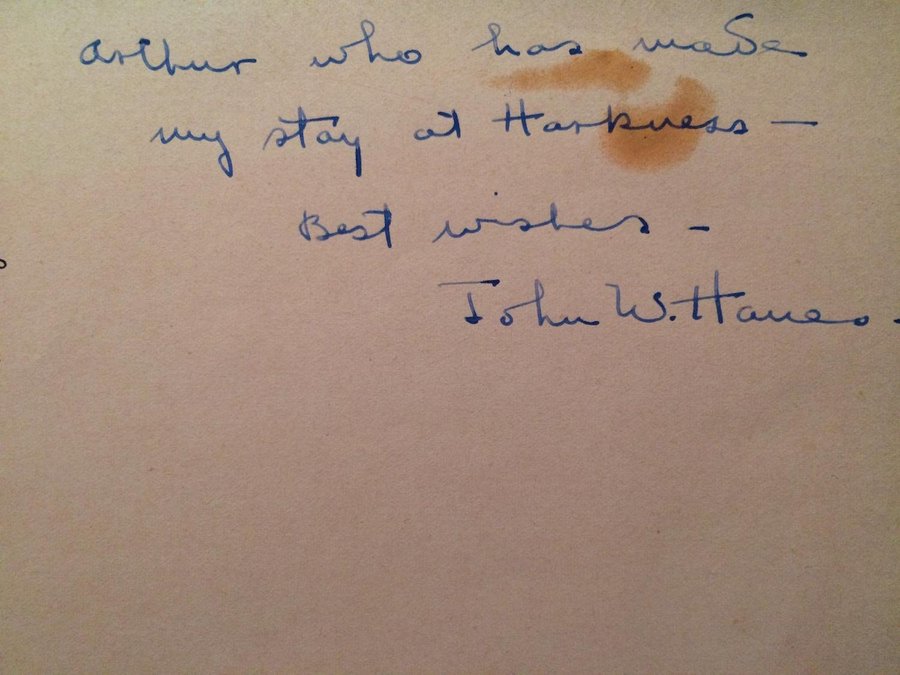 Arthur who has made
my stay at Harkness —
Best wishes –
John W. Hanes -